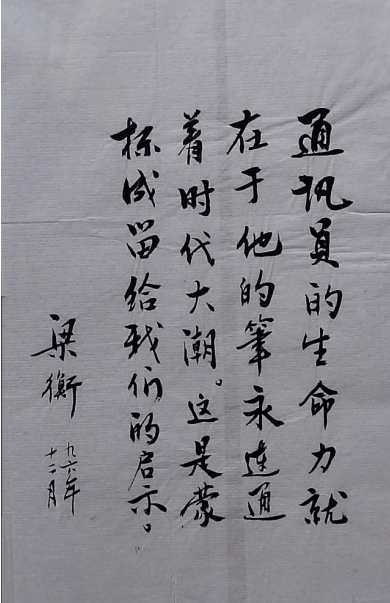 通讯员的生命力就
在于他的笔永连通
着时代大潮。这是蒙
标成留给我们的启示。
梁衡
九六年
十二月